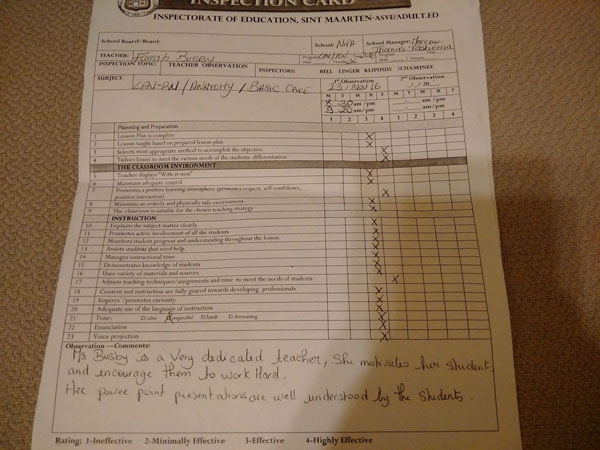 INSPECTION CARD
INSPECTORATE OF EDUCATION, SINT MAARTEN-ASVE/ADULT.ED
School Board/Board: School: NIPA School Manager:
TEACHER: Busby
INSPECTION TOPIC: TEACHER OBSERVATION INSPECTORS: BELL LINGER KLIPHUIS SCHAMINEE
SUBJECT: / Anatomy / Basic Care 1st Observation 2nd Observation
23 / Nov 16
M T W R F M T W R F
am/pm am/pm
am/pm am/pm
1 2 3 4 1 2 3 4
Planning and Preparation
1 Lesson Plan is complete X
2 Lesson taught based on prepared lesson plan X
3 Selects most appropriate method to accomplish the objective X
4 Tailors lesson to meet the various needs of the students: differentiation X
THE CLASSROOM ENVIRONMENT
5 Teacher displays "With-it-ness" X
6 Maintains adequate control X
7 Promotes a positive learning atmosphere (promotes respect, self-confidence,
positive interaction) X
8 Maintains an orderly and physically safe environment X
9 The classroom is suitable for the chosen teaching strategy X
INSTRUCTION
10 Explains the subject matter clearly X
11 Promotes active involvement of all the students X
12 Monitors student progress and understanding throughout the lesson. X
13 Assists students that need help X
14 Manages instructional time X
15 Demonstrates knowledge of students X
16 Uses variety of materials and sources X
17 Adjusts teaching techniques/assignments and time to meet the needs of students X
18 Content and instruction are fully geared towards developing professionals X
19 Inspires /promotes curiosity X
20 Adequate use of the language of instruction X
21 Tone: calm respectful harsh demeaning X
22 Enunciation X
23 Voice projection X
Observation —Comments:
Ms Busby is a very dedicated teacher, She motivates her students
and encourage them to work Hard.
Her power point presentations are well understood by the students.
Rating: 1-Ineffective 2-Minimally Effective 3-Effective 4-Highly Effective